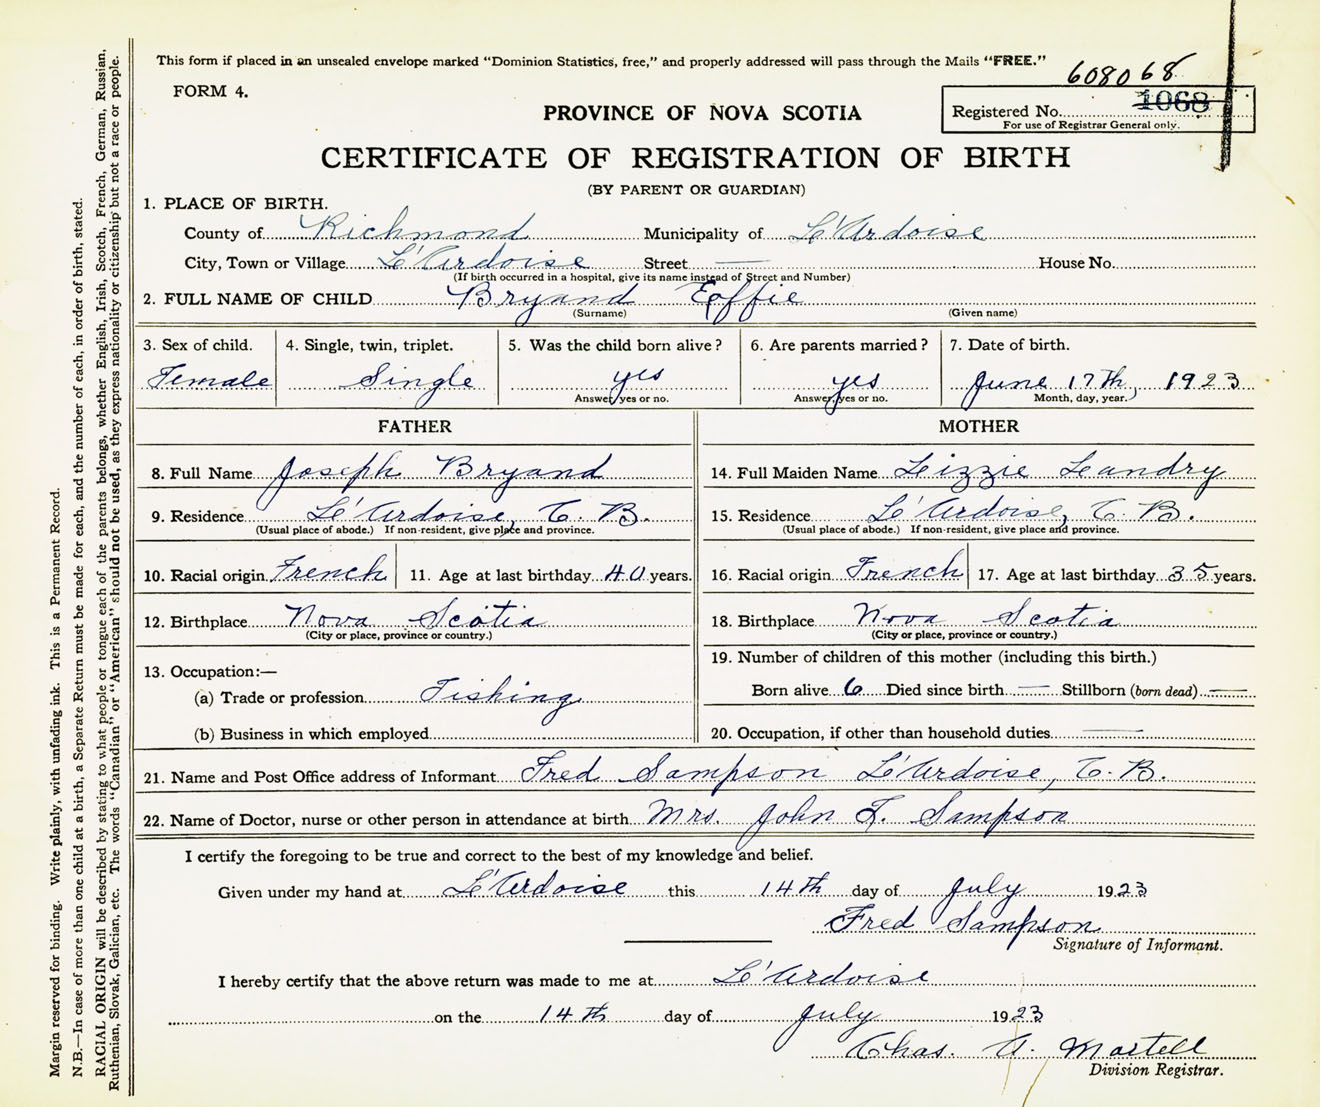 This form if placed in an unsealed envelope marked “Dominion Statistics, free,” and properly addressed will pass through the Mails “FREE.”
FORM 4.
608068
PROVINCE OF NOVA SCOTIA
Registered No. 1068
For use of Registrar General only.
CERTIFICATE OF REGISTRATION OF BIRTH
(BY PARENT OR GUARDIAN)
1. PLACE OF BIRTH.
County of Richmond Municipality of L'Ardoise
City, Town or Village L'Ardoise Street — House No.
(If birth occurred in a hospital, give its name instead of Street and Number)
2. FULL NAME OF CHILD Bryand Effie
(Surname) (Given name)
3. Sex of child. 4. Single, twin, triplet. 5. Was the child born alive? 6. Are parents married? 7. Date of birth.
Female Single yes yes June 17th, 1923
Answer yes or no. Answer yes or no. Month, day, year.
FATHER MOTHER
8. Full Name Joseph Bryand 14. Full Maiden Name Lizzie Landry
9. Residence L'Ardoise, C. B. 15. Residence L'Ardoise, C. B.
(Usual place of abode.) If non-resident, give place and province. (Usual place of abode.) If non-resident, give place and province.
10. Racial origin French 11. Age at last birthday 40 years. 16. Racial origin French 17. Age at last birthday 35 years.
12. Birthplace Nova Scotia 18. Birthplace Nova Scotia
(City or place, province or country.) (City or place, province or country.)
13. Occupation:— 19. Number of children of this mother (including this birth.)
(a) Trade or profession Fishing Born alive 6 Died since birth — Stillborn (born dead) —
(b) Business in which employed 20. Occupation, if other than household duties —
21. Name and Post Office address of Informant Fred Sampson L'Ardoise, C. B.
22. Name of Doctor, nurse or other person in attendance at birth Mrs. John L. Sampson
I certify the foregoing to be true and correct to the best of my knowledge and belief.
Given under my hand at L'Ardoise this 14th day of July 1923
Fred Sampson
Signature of Informant.
I hereby certify that the above return was made to me at L'Ardoise
on the 14th day of July 1923
Chas. A. Martell
Division Registrar.
Margin reserved for binding. Write plainly, with unfading ink. This is a Permanent Record.
N.B.—In case of more than one child at a birth, a Separate Return must be made for each, and the number of each, in order of birth, stated.
RACIAL ORIGIN will be described by stating to what people or tongue each of the parents belongs, whether English, Irish, Scotch, French, German, Russian,
Ruthenian, Slovak, Galician, etc. The words “Canadian” or “American” should not be used, as they express nationality or citizenship but not a race or people.